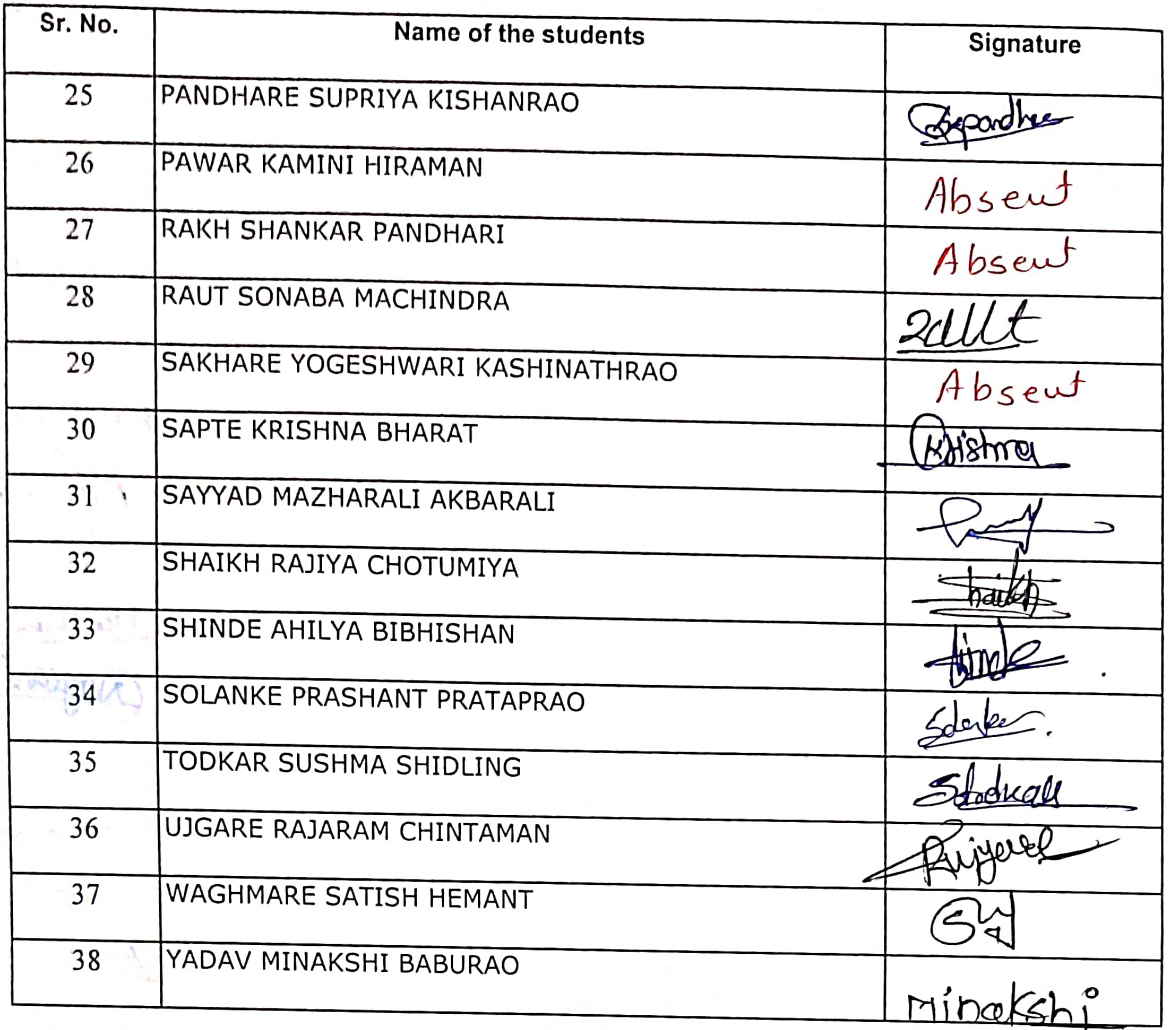 Sr. No. Name of the students Signature
25 PANDHARE SUPRIYA KISHANRAO
26 PAWAR KAMINI HIRAMAN Absent
27 RAKH SHANKAR PANDHARI Absent
28 RAUT SONABA MACHINDRA
29 SAKHARE YOGESHWARI KASHINATHRAO Absent
30 SAPTE KRISHNA BHARAT Krishna
31 SAYYAD MAZHARALI AKBARALI
32 SHAIKH RAJIYA CHOTUMIYA
33 SHINDE AHILYA BIBHISHAN
34 SOLANKE PRASHANT PRATAPRAO
35 TODKAR SUSHMA SHIDLING
36 UJGARE RAJARAM CHINTAMAN
37 WAGHMARE SATISH HEMANT
38 YADAV MINAKSHI BABURAO Minakshi